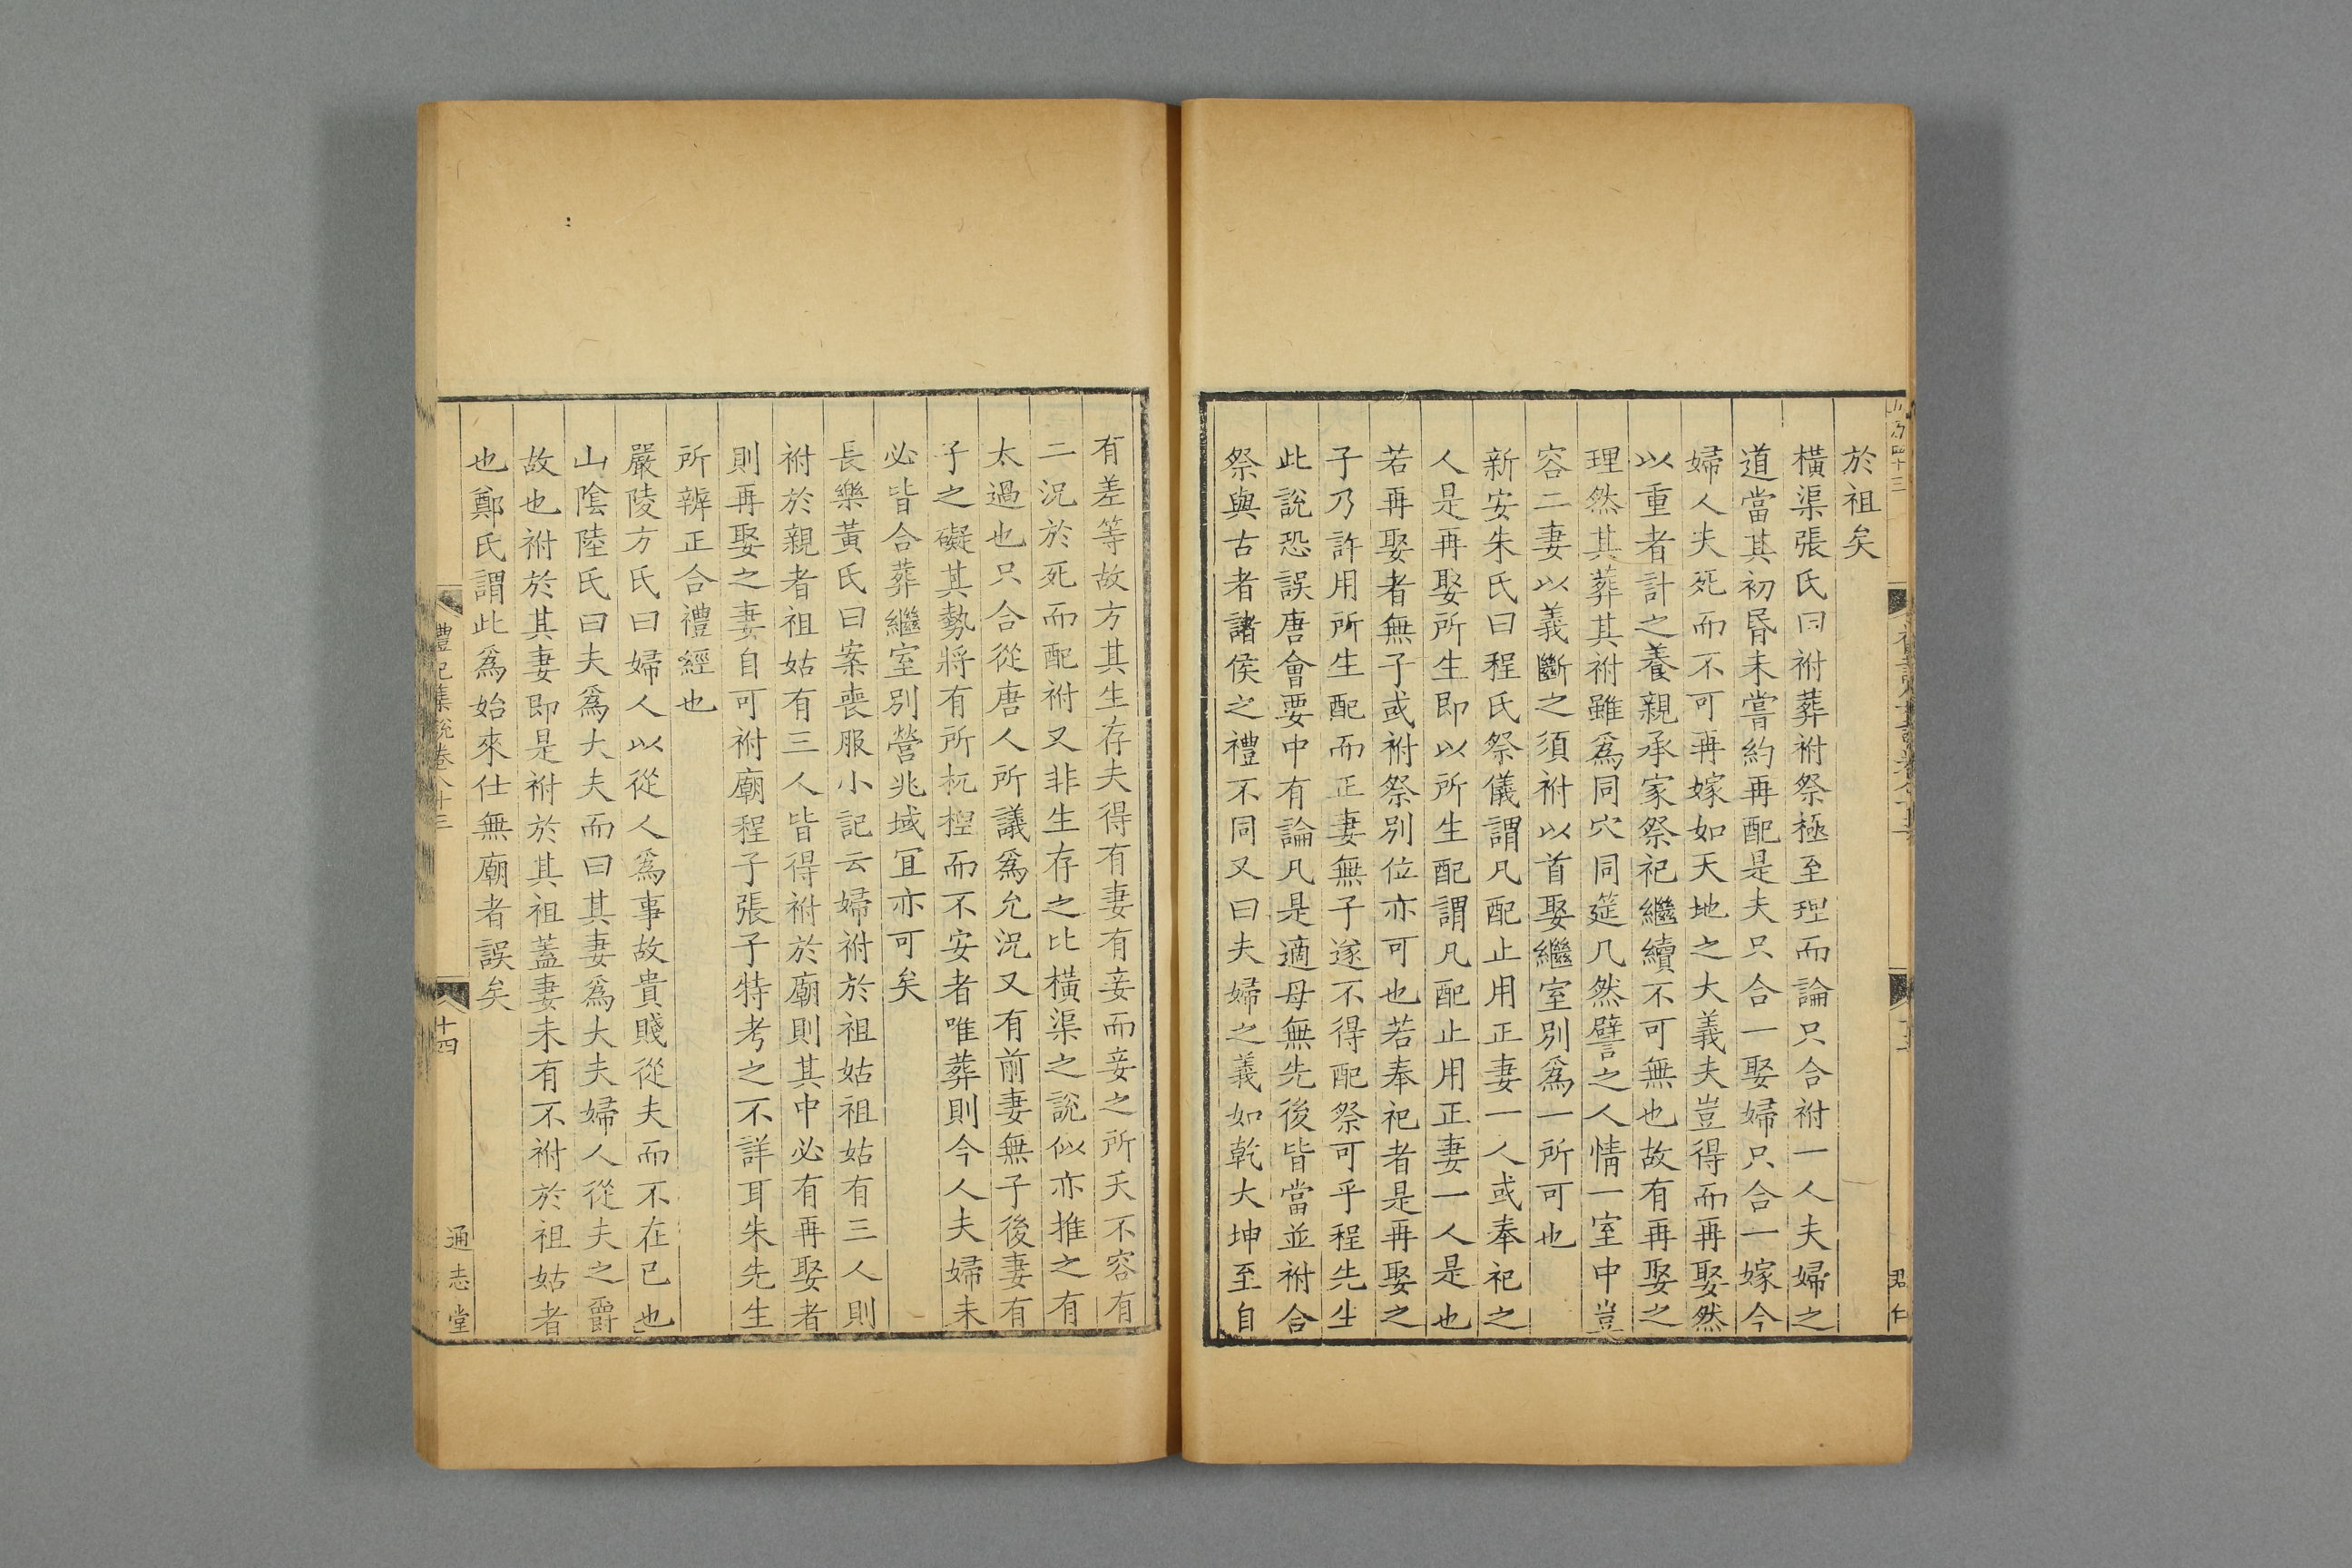 於祖矣
橫渠張氏曰祔葬祔祭極至理而論只合祔一人夫婦之
道當其初昏未嘗約再配是夫只合一娶婦只合一嫁今
婦人夫死而不可再嫁如天地之大義夫豈得而再娶然
以重者計之養親承家祭祀繼續不可無也故有再娶之
理然其葬其祔雖爲同穴同筵几然譬之人情一室中豈
容二妻以義斷之須祔以首娶繼室別爲一所可也
新安朱氏曰程氏祭儀謂凡配止用正妻一人或奉祀之
人是再娶所生即以所生配謂凡配止用正妻一人是也
若再娶者無子或祔祭別位亦可也若奉祀者是再娶之
子乃許用所生配而正妻無子遂不得配祭可乎程先生
此說恐誤唐會要中有論凡是適母無先後皆當並祔合
祭與古者諸侯之禮不同又曰夫婦之義如乾大坤至自
有差等故方其生存夫得有妻有妾而妾之所天不容有
二況於死而配祔又非生存之比橫渠之說似亦推之有
太過也只合從唐人所議爲允況又有前妻無子後妻有
子之礙其勢將有所杌楻而不安者唯葬則今人夫婦未
必皆合葬繼室別營兆域宜亦可矣
長樂黃氏曰案喪服小記云婦祔於祖姑祖姑有三人則
祔於親者祖姑有三人皆得祔於廟則其中必有再娶者
則再娶之妻自可祔廟程子張子特考之不詳耳朱先生
所辨正合禮經也
嚴陵方氏曰婦人以從人爲事故貴賤從夫而不在已也
山陰陸氏曰夫爲大夫而曰其妻爲大夫婦人從夫之爵
故也祔於其妻即是祔於其祖蓋妻未有不祔於祖姑者
也鄭氏謂此爲始來仕無廟者誤矣
禮記集說卷八十三
十四
通志堂